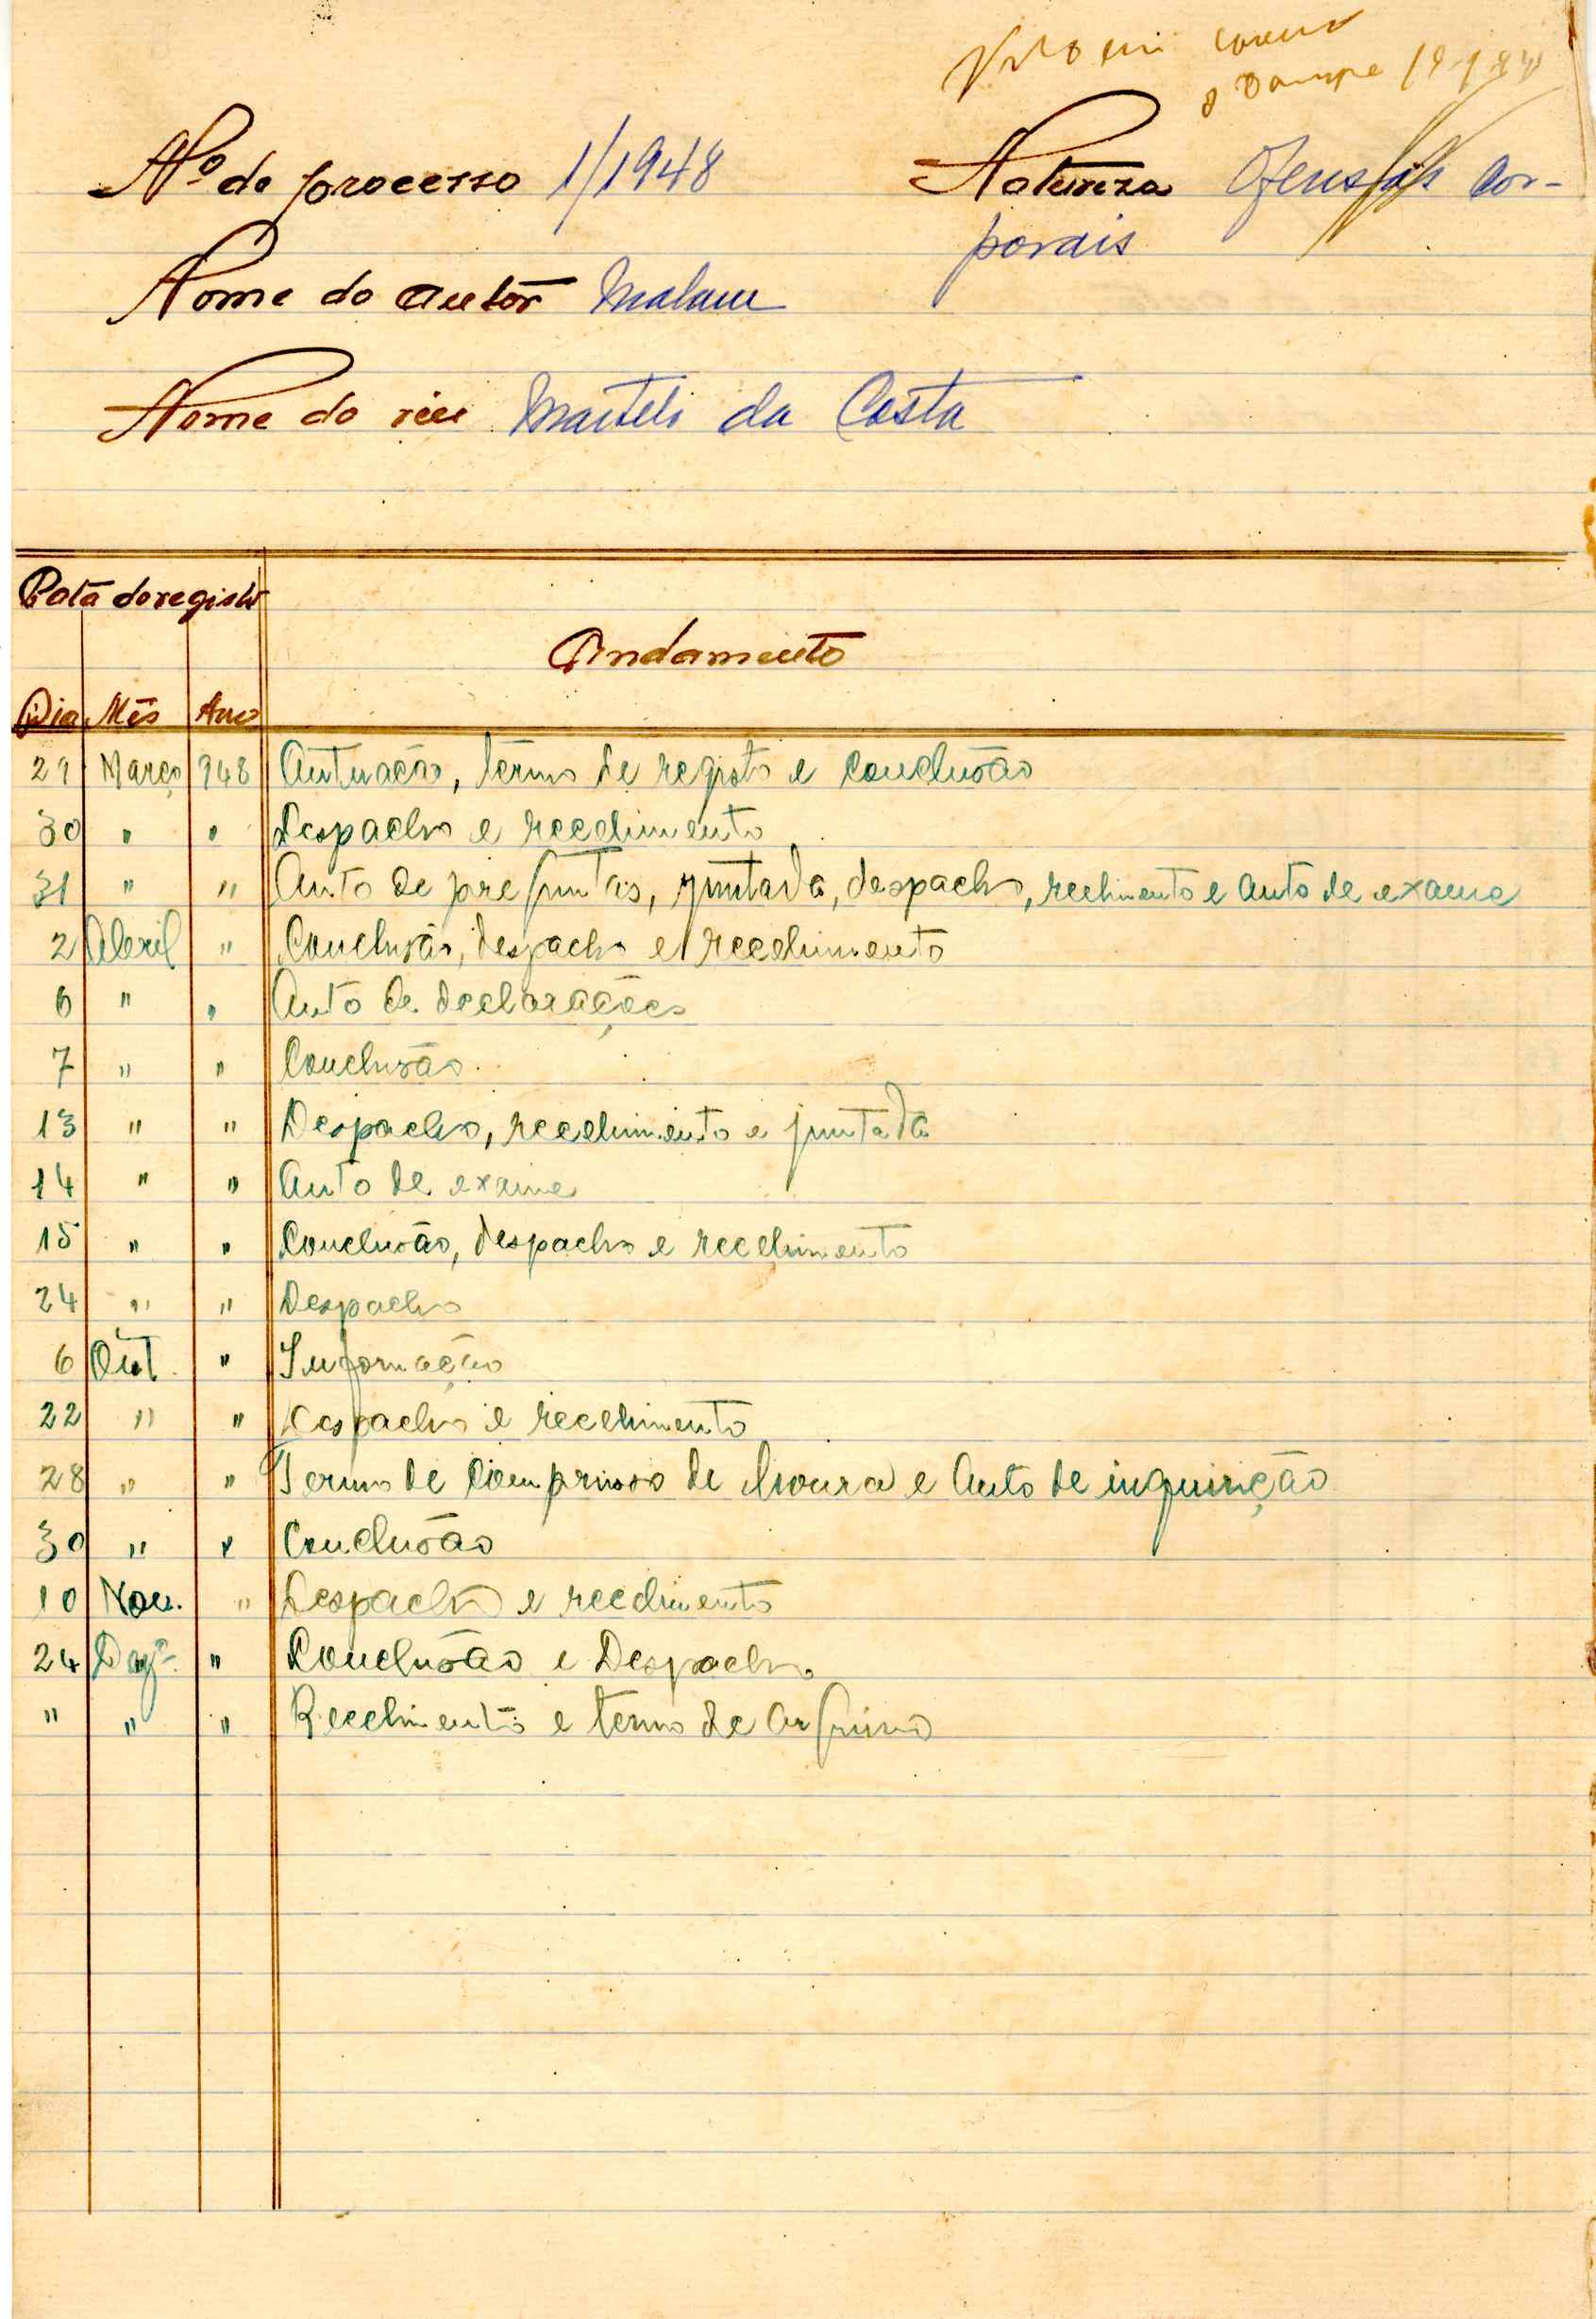 Visto em
Nº do processo 1/1948 Natureza Ofensas cor-
porais
Nome do autor Malam
Nome do réu da Costa
Data do registo
Andamento
Dia Mês Ano
29 Março 948 Autuação, termo de registo e conclusão
30 " " Despacho e recebimento
31 " " Auto de preguntas, juntada, despacho, recebimento e auto de exame
2 Abril " Conclusão, despacho e recebimento
6 " " Auto de declarações
7 " " Conclusão
13 " " Despacho, recebimento e juntada
14 " " Auto de exame
15 " " Conclusão, despacho e recebimento
24 " " Despacho
6 Out. " Informação
22 " " Despacho e recebimento
28 " " Termo de de honra e Auto de inquirição
30 " " Conclusão
10 Nov. " Despacho e recebimento
24 Dezº. " Conclusão e Despacho
" " " Recebimento e termo de arquivo